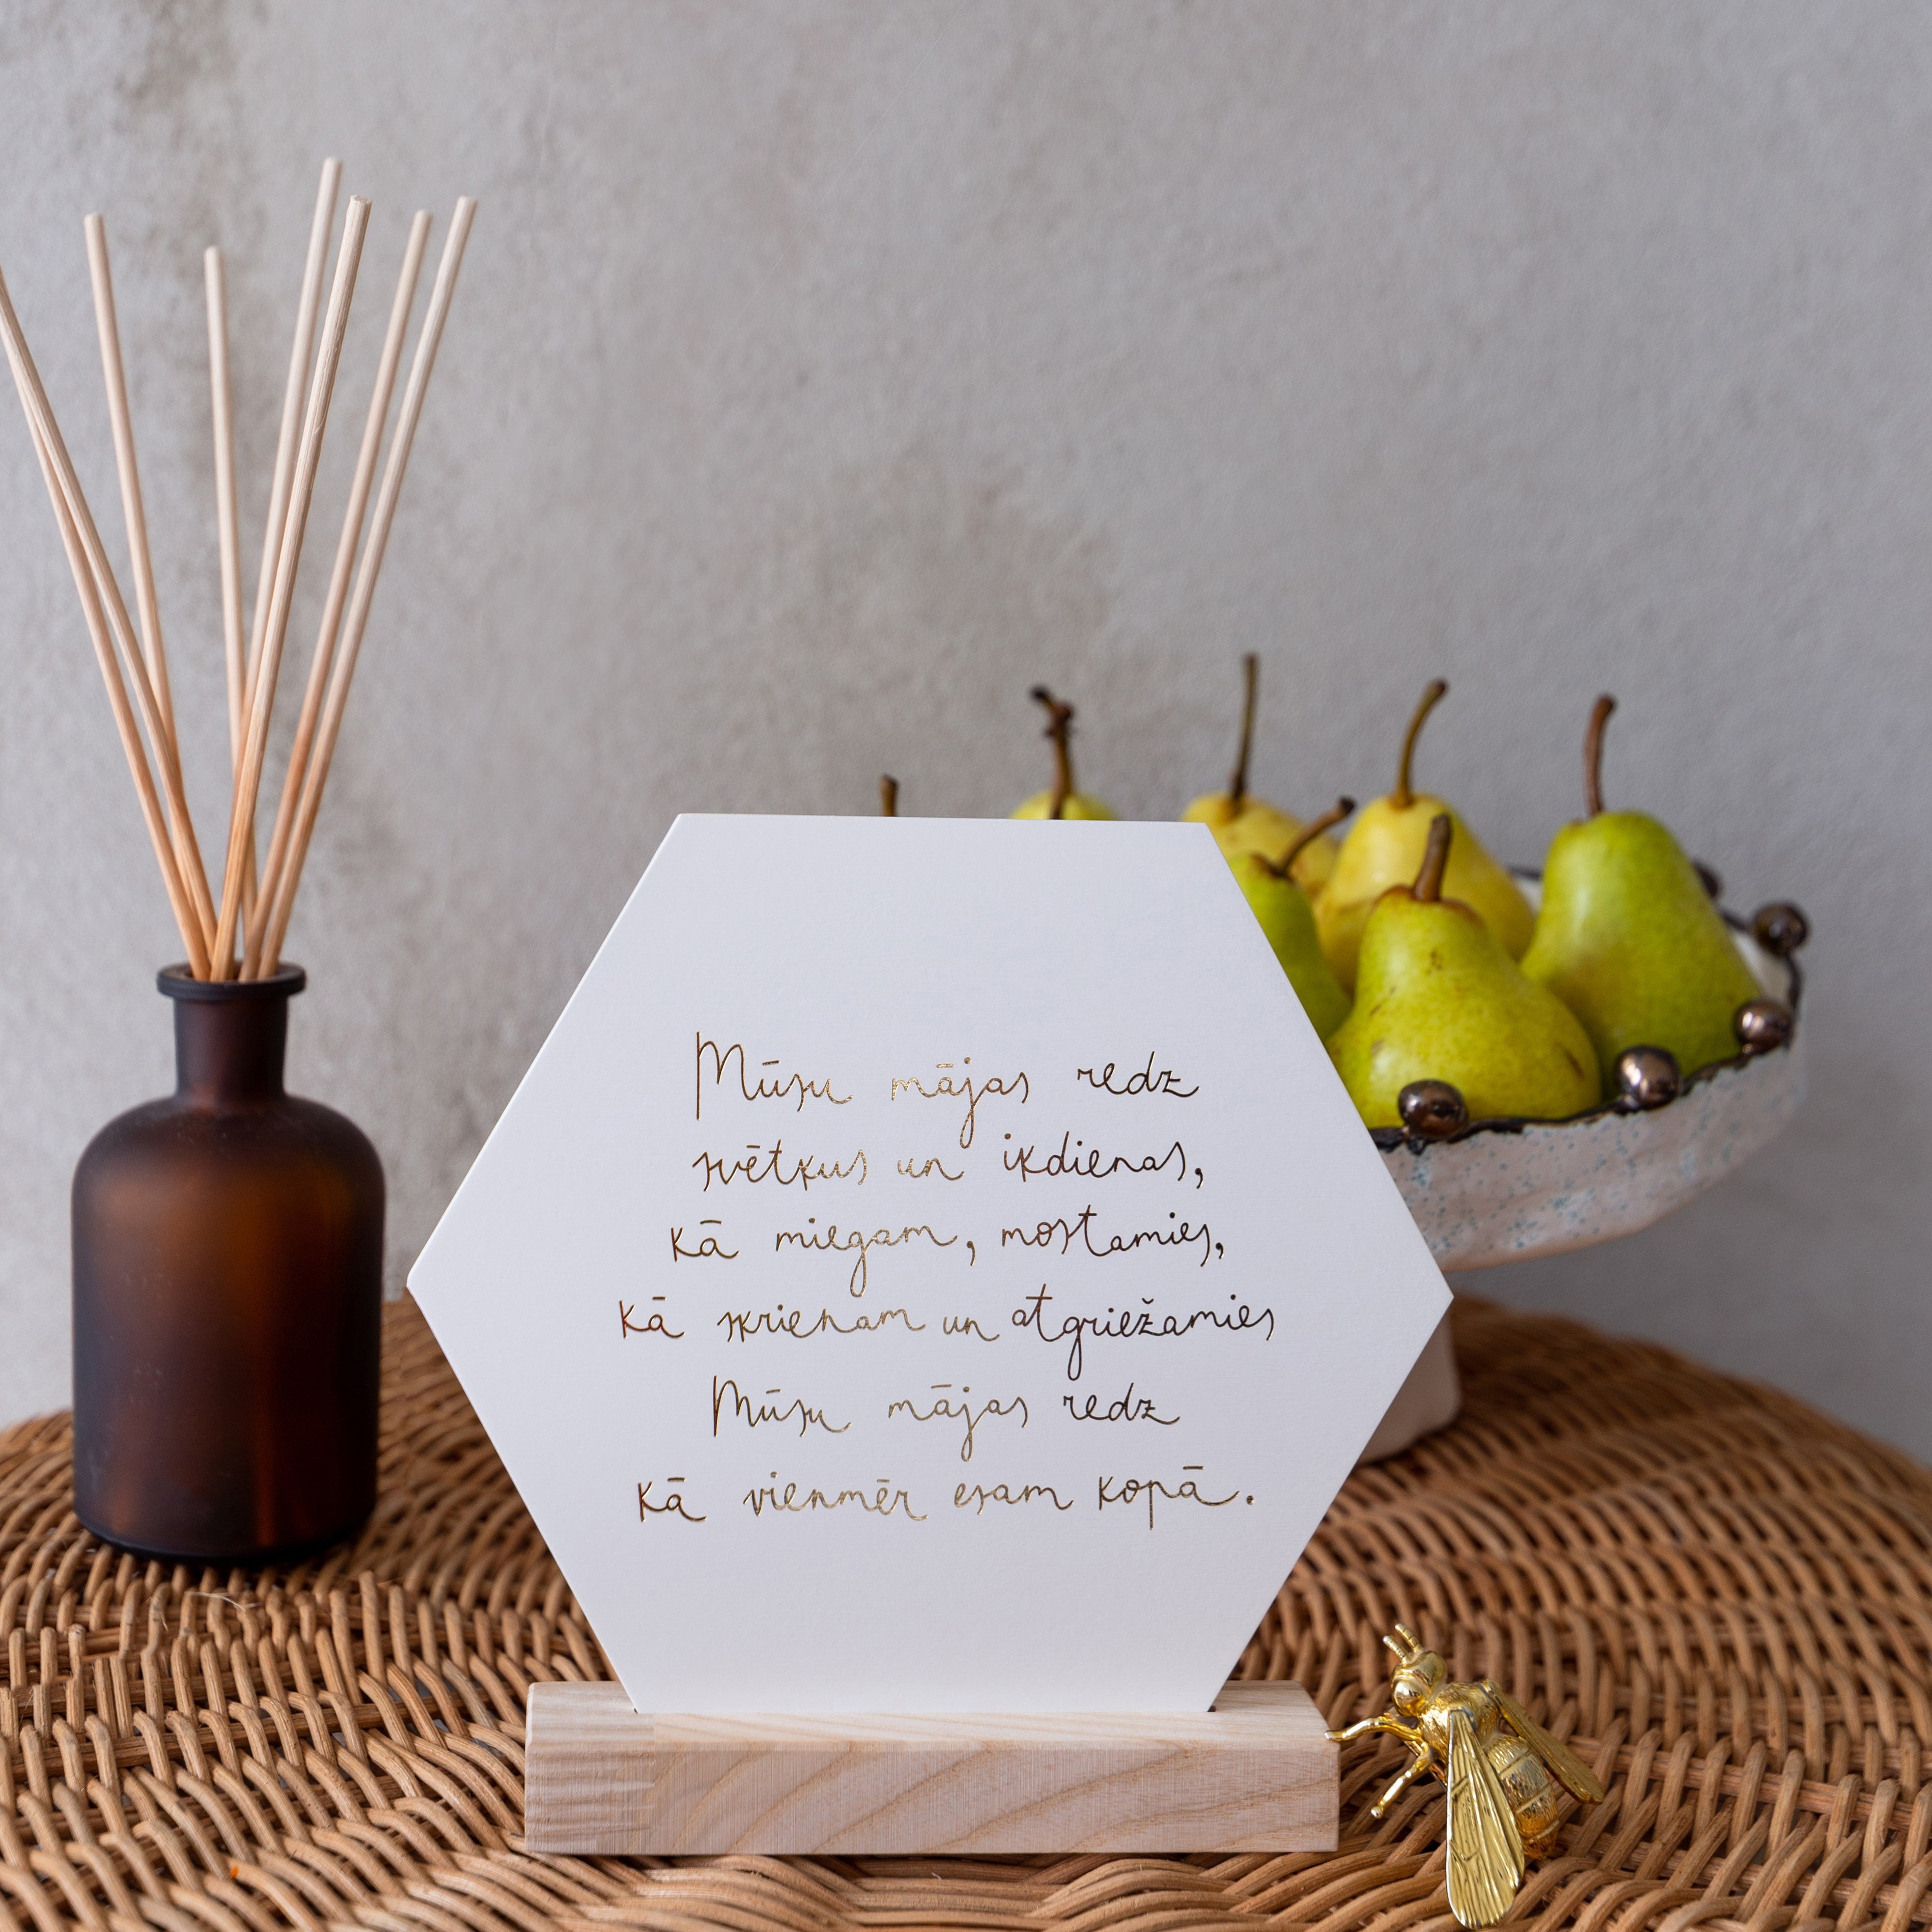 Mūsu mājas redz
svētkus un ikdienas,
kā miegam, mostamies,
kā skrienam un atgriežamies
Mūsu mājas redz
kā vienmēr esam kopā.